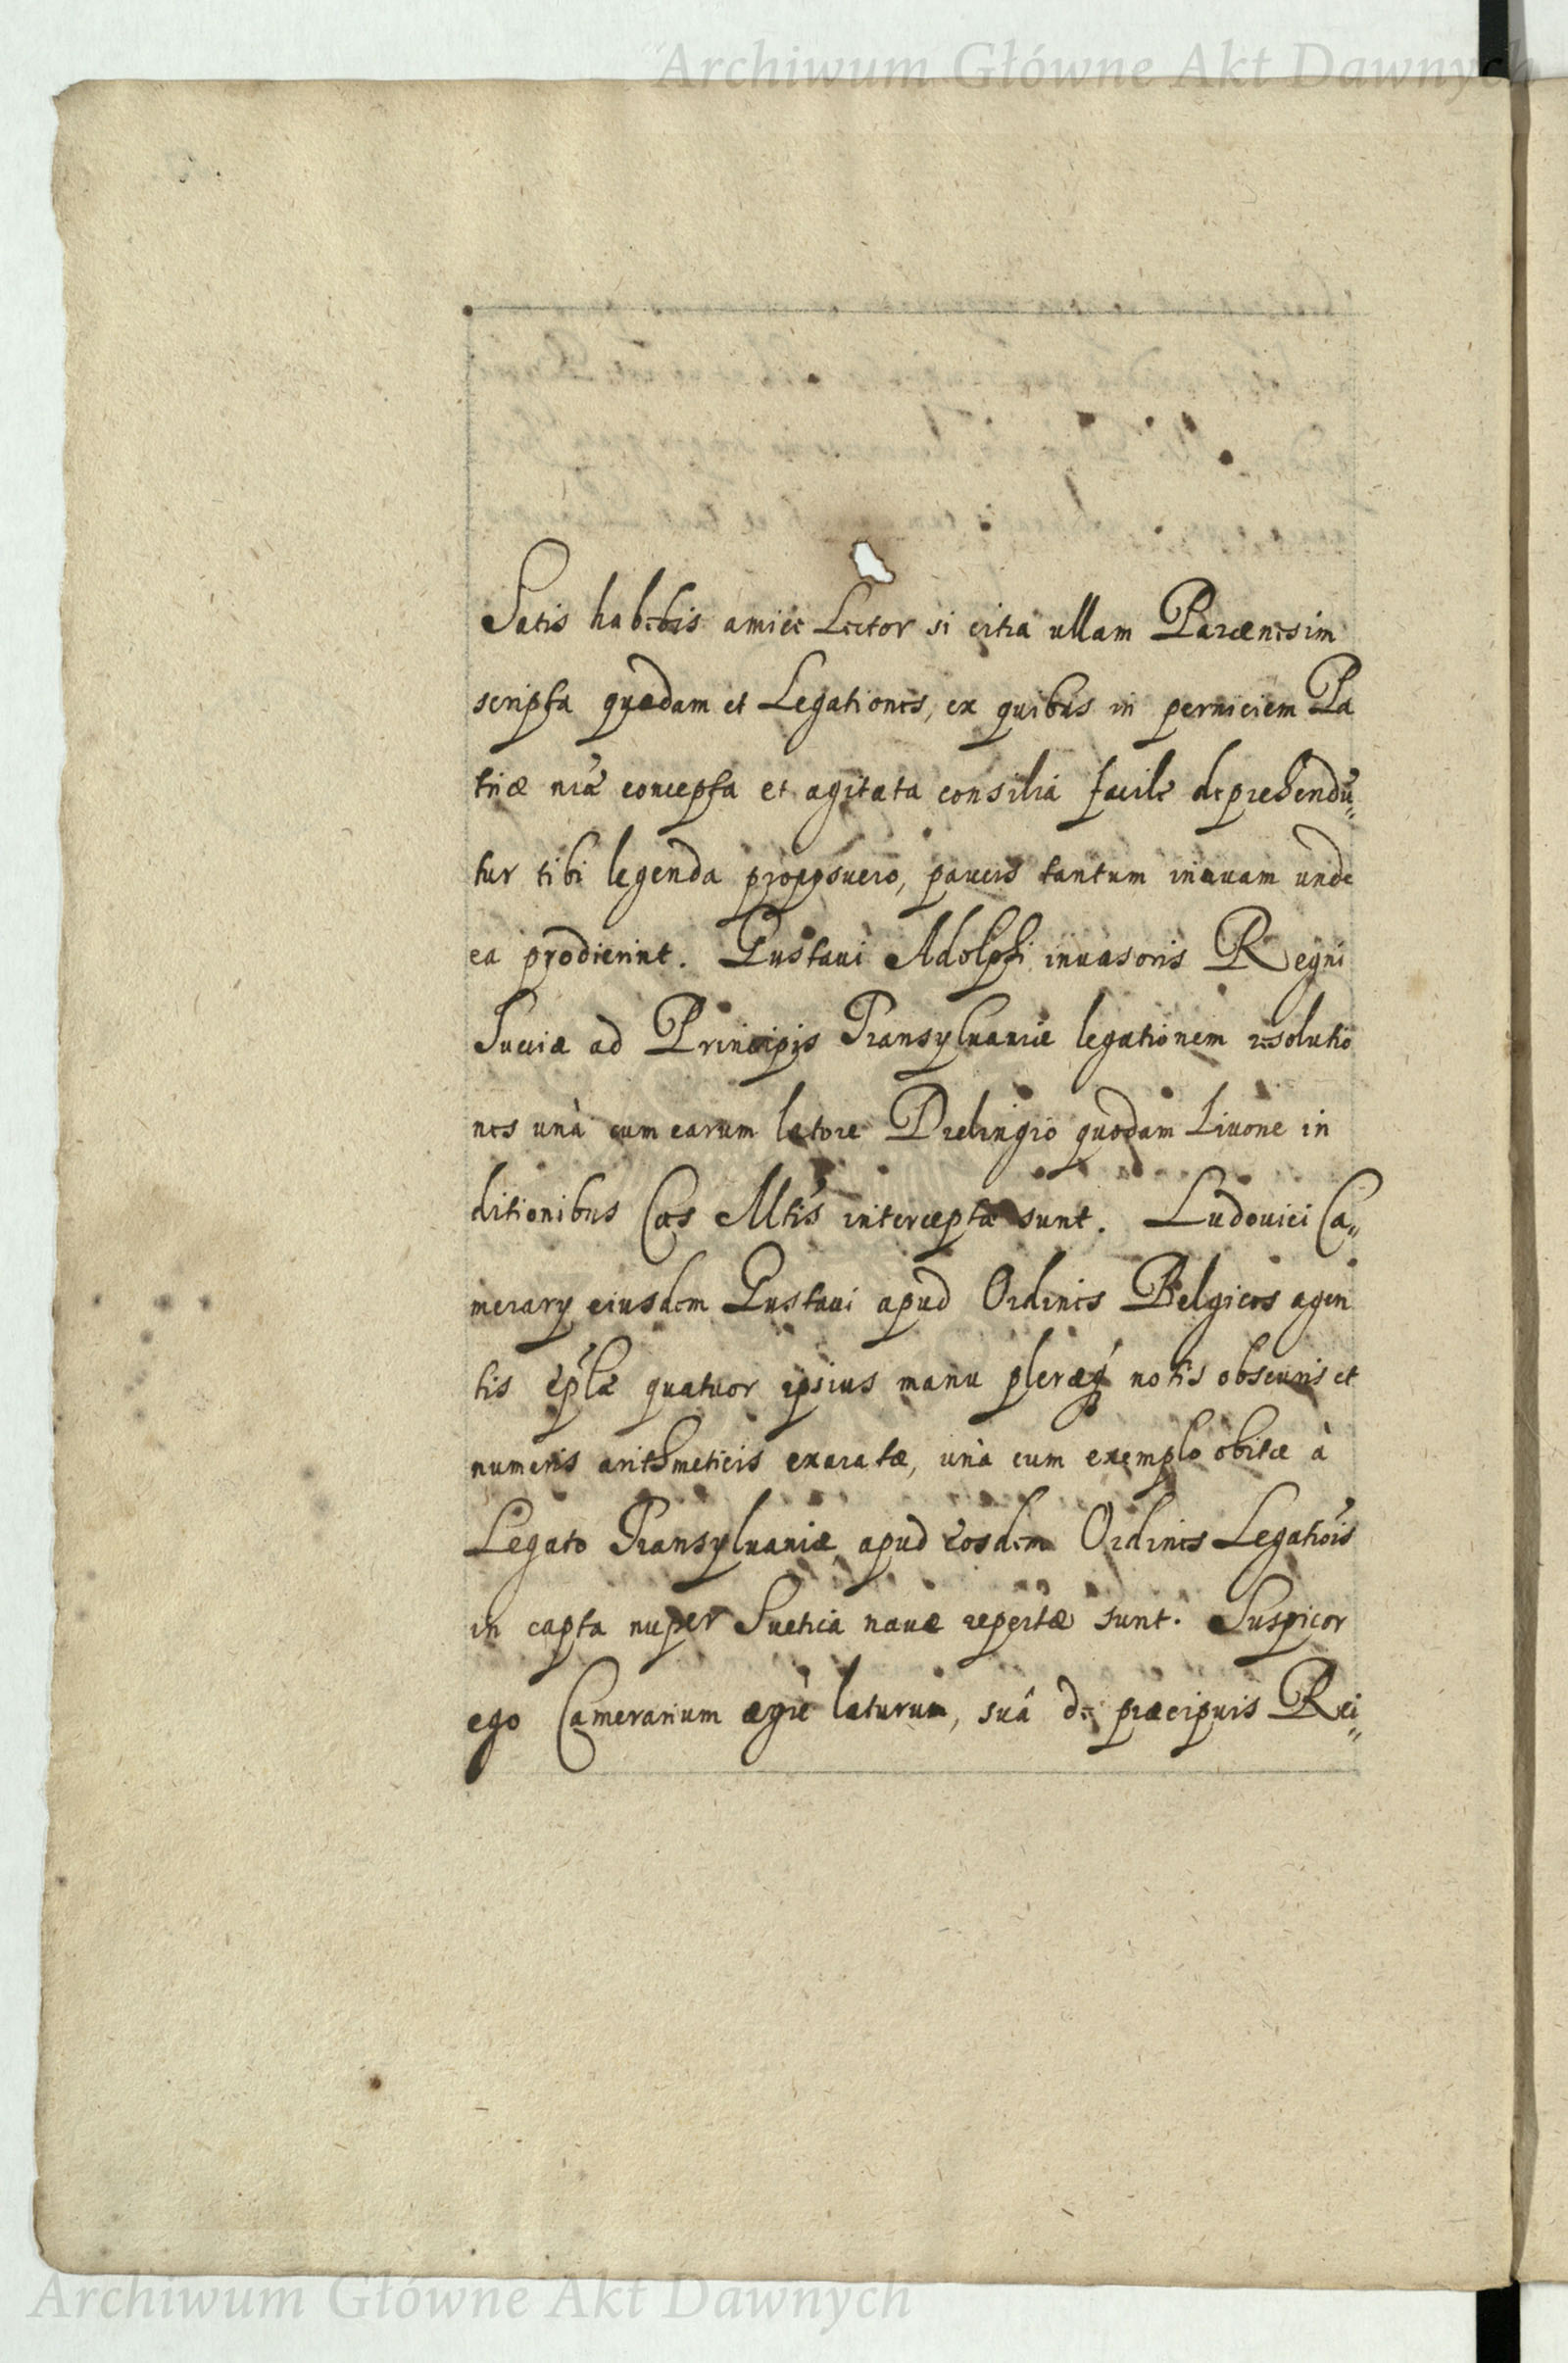 Archiwum Główne Akt Dawnych
Satis habebis amice Lector si citra ullam Parænesim
scripta quædam et Legationes, ex quibus in perniciem Pa
triæ nr̃æ concepta et agitata consilia facile deprehendũ„
tur tibi legenda proposuero, paucis tantum innuam unde
ea prodierint. Gustaui Adolphi inuasoris Regni
Sueciæ ad Principis Transyluaniæ legationem resolutio
nes unà cum earum latore Drelingio quodam Liuone in
ditionibus Cæs Mtis interceptæ sunt. Ludouici Ca„
merarÿ eiusdem Gustaui apud Ordines Belgicos agen
tis ep̃læ quatuor ipsius manu pleræq́ notis obscuris et
numeris arithmeticis exaratæ, unà cum exemplo obitæ à
Legato Transyluaniæ apud eosdem Ordines Legatiõis
in capta nuper Suetica naue repertæ sunt. Suspicor
ego Camerarium ægrè laturum, suâ de præcipuis Rei„
Archiwum Główne Akt Dawnych